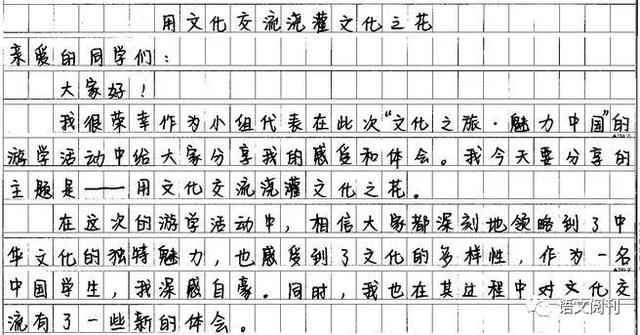 用文化交流浇灌文化之花
亲爱的同学们：
大家好！
我很荣幸作为小组代表在此次“文化之旅·魅力中国”的
游学活动中给大家分享我的感受和体会。我今天要分享的
主题是——用文化交流浇灌文化之花。
在这次的游学活动中，相信大家都深刻地领略到了中
华文化的独特魅力，也感受到了文化的多样性，作为一名
中国学生，我深感自豪。同时，我也在其过程中对文化交
流有了一些新的体会。
语文阅刊